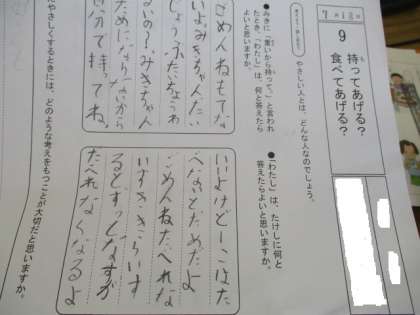 9
持ってあげる?
食べてあげる?
やさしい人とは、どんな人なのでしょう。
●みきに「重いから持って。」と言われ
たとき、「わたし」は、何と答えたら
よいと思いますか。
ごめんねもてな
いよ。みきちゃんだい
ないの?みきちゃん
ためにならないから
自分で持ってね。
●「わたし」は、たけしに何と
答えたらよいと思いますか。
いいよけど一こはた
べないとだめだよ
ごめんねたべれな
いすききらいす
るとずっとなすが
たべれなくなるよ
やさしくするときには、どのような考えをもつことが大切だと思いますか。